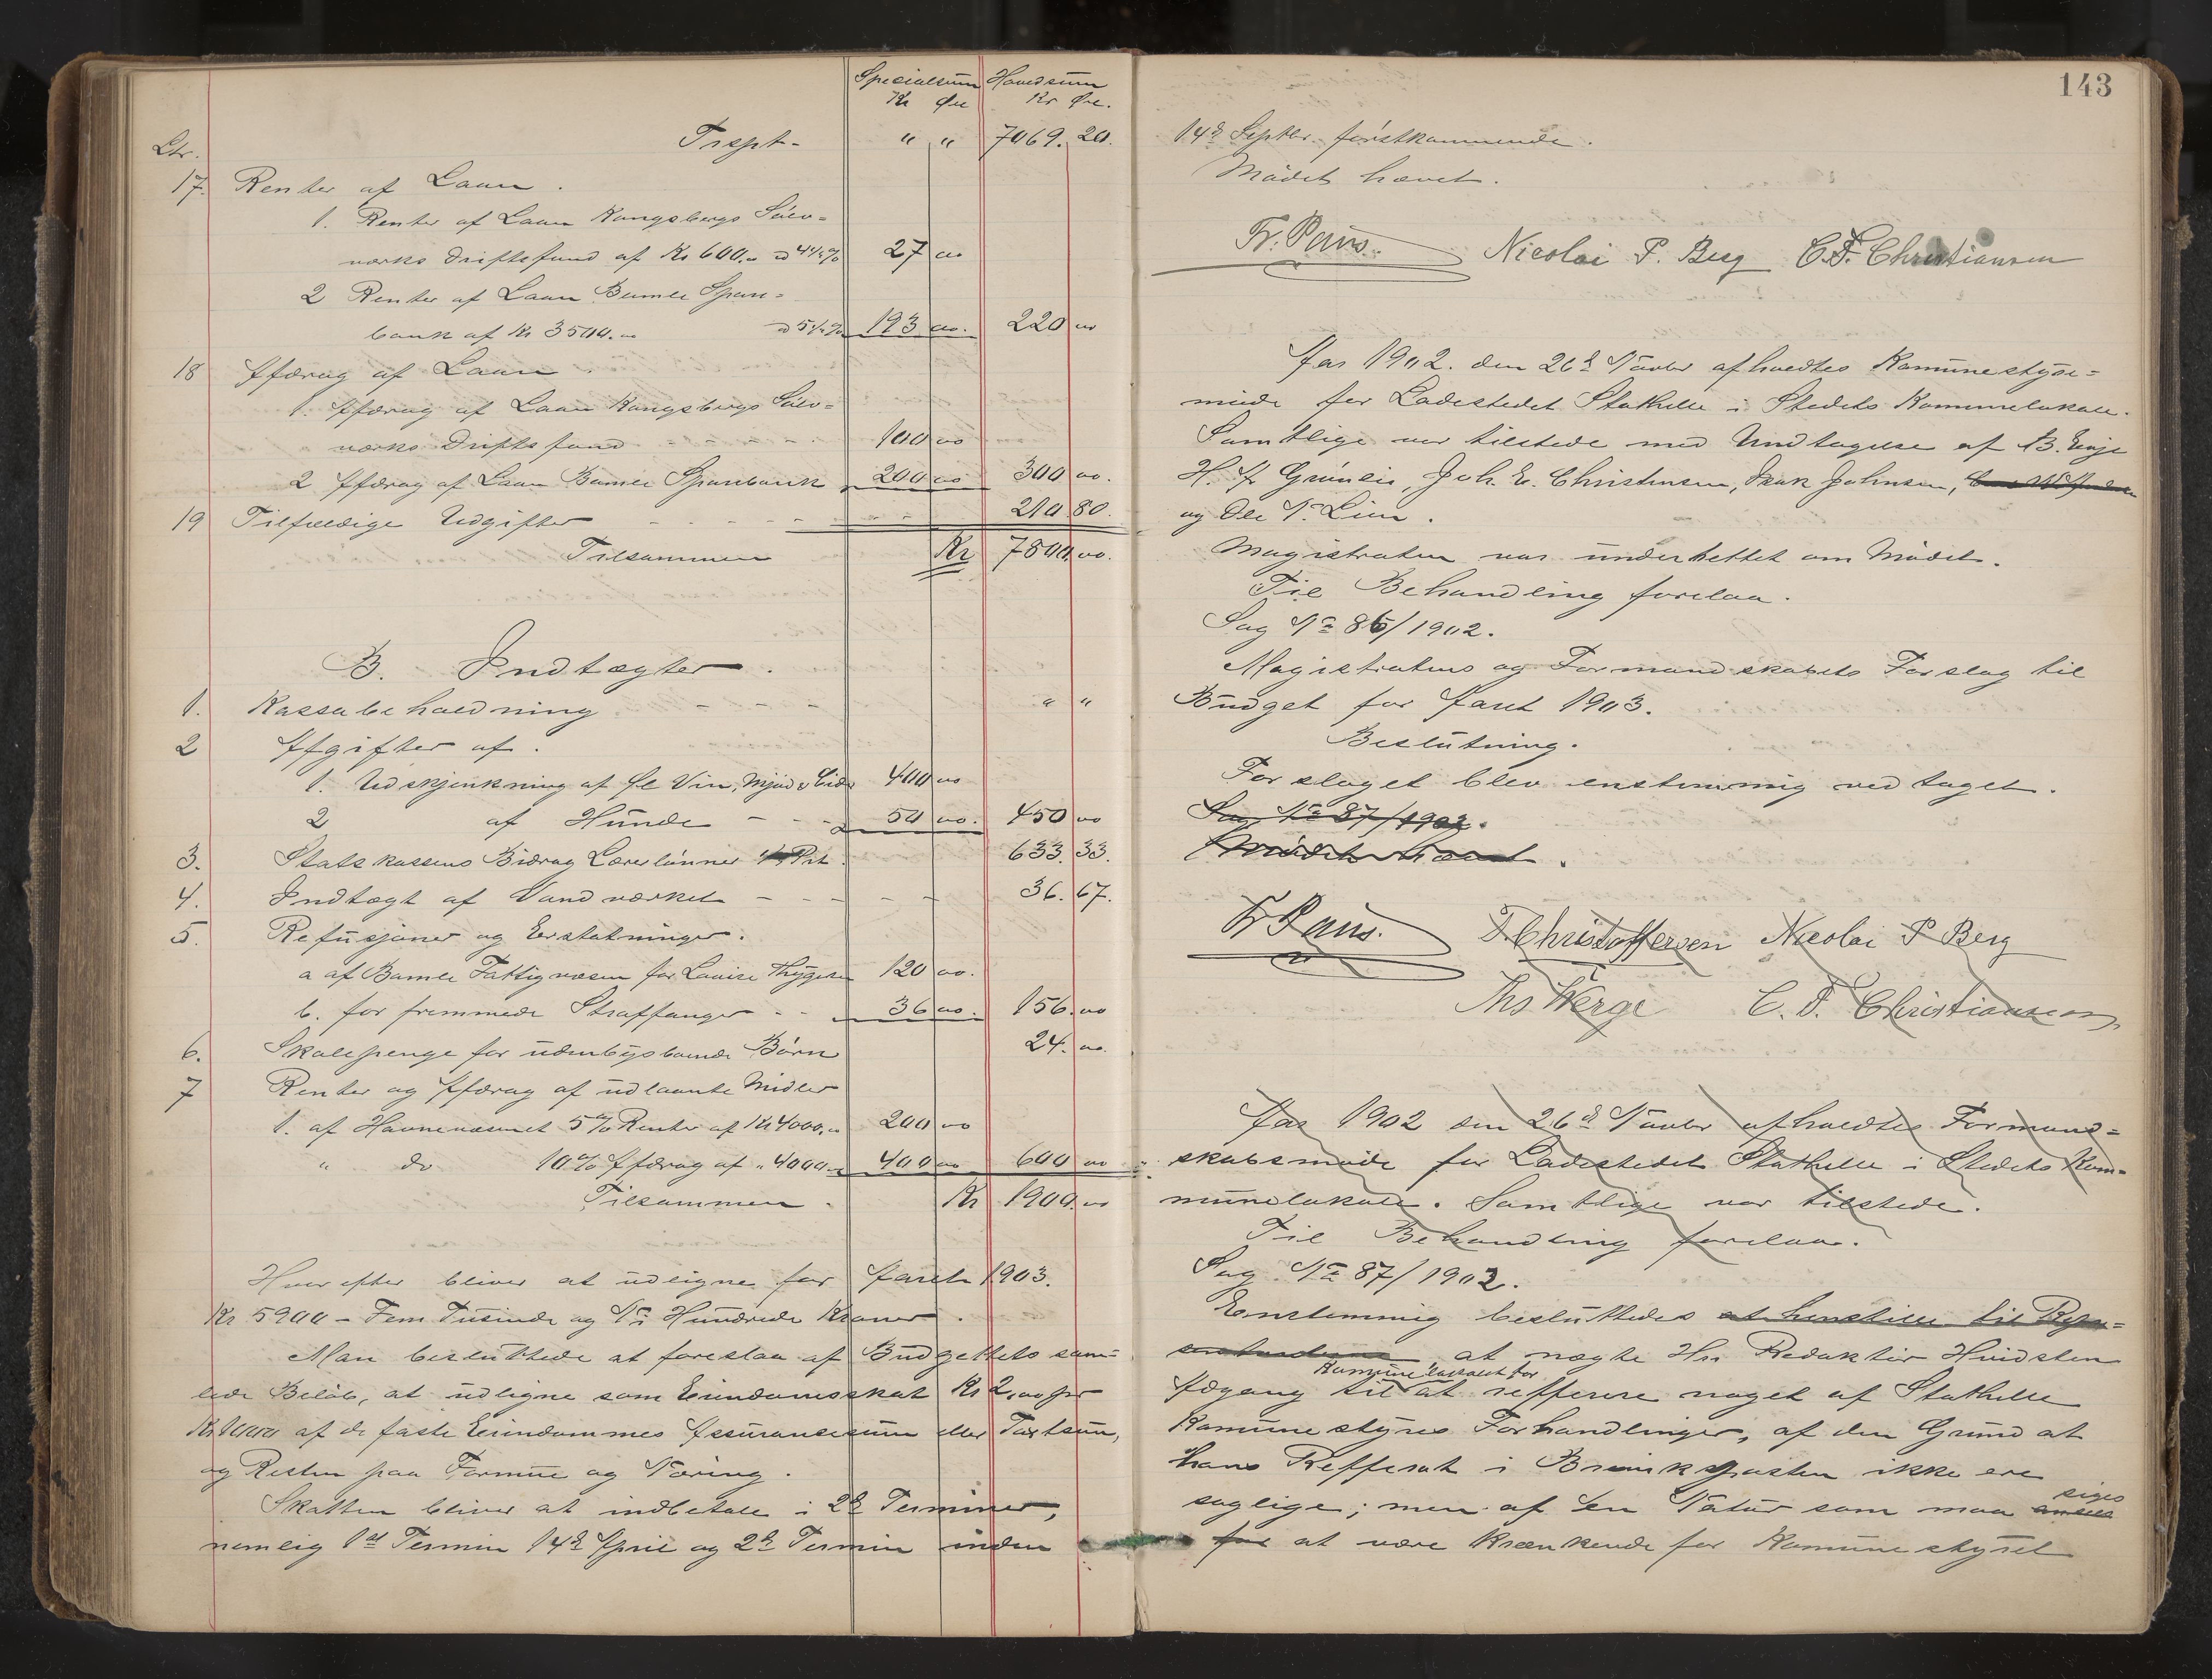 Specialsum Hovedsum
Kr Øre Kr Øre.
Ltr. Trspt- " " 7069. 20.
17. Renter af Laan.
1. Renter af Laan Kongsbergs Sölv-
værks Driftsfund af Kr 600.00 a 4½% 27 00
2 Renter af Laan Bamle Spare-
bank af Kr 3500.00 a 5½% 193 00. 220 00
18 Afdrag af Laan.
1. Afdrag af Laan Kongsbergs Sölv-
værks Driftsfund 100 00
2 Afdrag af Laan Bamle Sparebank 200 00 300 00.
19 Tilfældige Udgifter 210 80.
Tilsammen Kr 7800.00.
B. Indtægter.
1. Kassabeholdning " "
2 Afgifter af.
1. Udskjenkning af Øl Vin, Mjød & Cider 400 00
2 af Hunde 50 00. 450 00
3. Statskassens Bidrag Lærerlönner 633. 33.
4. Indtægt af Vandværket 36. 67.
5. Refusjoner og Erstatninger.
a af Bamle Fattigvæsen for Louise Thygesen 120 00.
b. for fremmede Straffanger 36 00. 156. 00
6. Skolepenge for udenbysboende Børn 24. 00.
7 Renter og Afdrag af udlaante Midler
1. af Havnevæsenet 5% Renter af Kr 4000.00 200 00
" do 10% Afdrag af " 4000.00 400 00 600 00
Tilsammen. Kr 1900.00
Hvorefter bliver at udligne for Aaret 1903.
Kr 5900 - Fem Tusinde og Ni Hundrede Kroner.
Man besluttede at foreslaa af Budgettets sam-
lede Beløb, at udligne som Eiendomsskat Kr 2,00 pr
Kr 1000 af de faste Eiendommes Assurancesum eller Taxtsum,
og Resten paa Formue og Næring.
Skatten bliver at indbetale i 2de Terminer,
nemlig 1st Termin 14de April og 2den Termin inden
143
14de Septbr. førstkommende.
Mödet hævet.
Fr. Paus. Nicolai P. Berg C. F. Christiansen
Aar 1902. den 26de Novbr afholdtes Komunestyre-
möde for Ladestedet Stathelle i Stedets Komunelokale.
Samtlige var tilstede med Undtagelse af B. Eeg
H. A. Grönsis, Joh. E. Christensen, Isak Johnsen,
og Ole N. Lien.
Magistraten var underrettet om Mödet.
Til Behandling forelaa.
Sag No 86/1902.
Magistratens og Formandskabets Forslag til
Budget for Aaret 1903.
Beslutning.
Forslaget blev enstemmig vedtaget.
Sag No 87/1902.
Mödet hævet.
Fr Paus. T. Christoffersen Nicolai P Berg
Ths Werge C. F. Christiansen
Aar 1902 den 26de Novbr afholdtes Formand-
skabsmöde for Ladestedet Stathelle i Stedets Kom-
munelokale. Samtlige var tilstede.
Til Behandling forelaa.
Sag No 87/1902.
Eenstemmig besluttedes at henstille til Repræ-
sentanterne at nægte Hr. Redaktör Hvidsten
Komunelokalet for
Adgang til at refferere noget af Stathelle
Komunestyres Forhandlinger, af den Grund at
hans Refferat i Breviksposten ikke ere
saglige; men af en Natur som maa ansees siges
for at være krænkende for Komunestyret